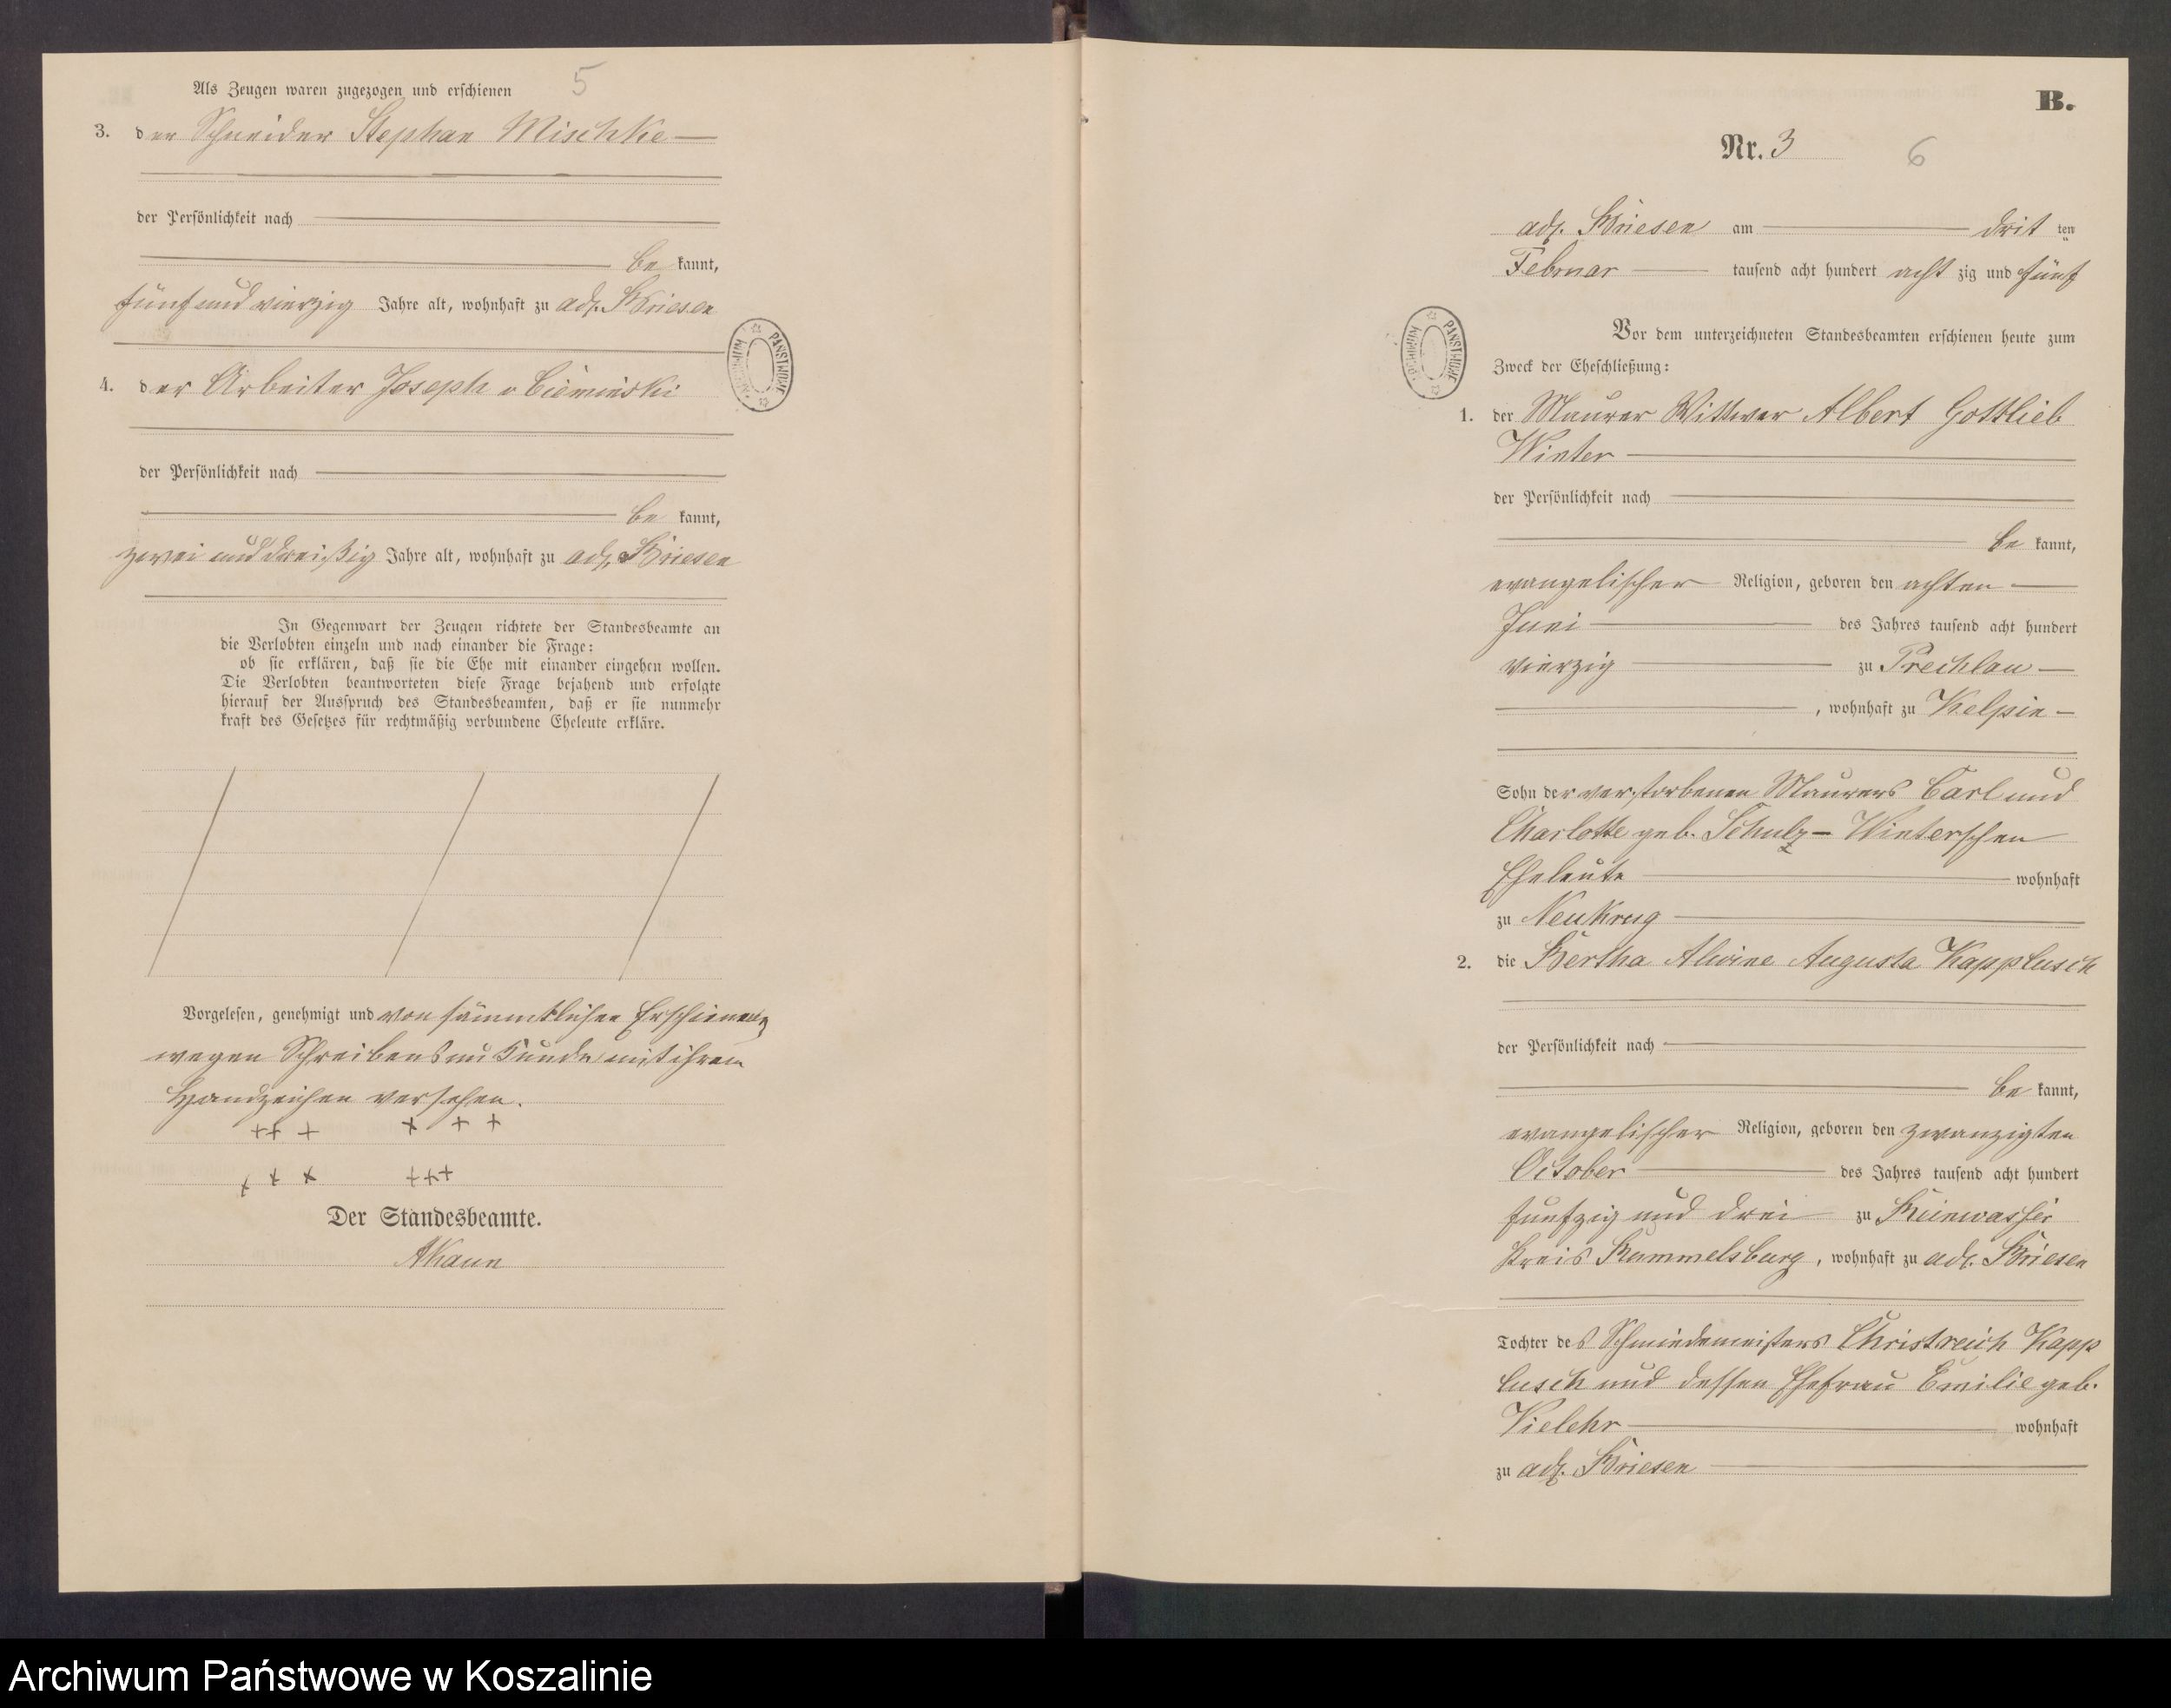 5
Als Zeugen waren zugezogen und erschienen
3. der Schneider Stephan Mischke
der Persönlichkeit nach
be kannt,
fünf und vierzig Jahre alt, wohnhaft zu adl. Briesen
4. der Arbeiter Joseph v Cieminski
der Persönlichkeit nach
be kannt,
zwei und dreißig Jahre alt, wohnhaft zu adl. Briesen
In Gegenwart der Zeugen richtete der Standesbeamte an
die Verlobten einzeln und nach einander die Frage:
ob sie erklären, daß sie die Ehe mit einander eingehen wollen.
Die Verlobten beantworteten diese Frage bejahend und erfolgte
hierauf der Ausspruch des Standesbeamten, daß er sie nunmehr
kraft des Gesetzes für rechtmäßig verbundene Eheleute erkläre.
Vorgelesen, genehmigt und von sämmtlichen Erschienenen
wegen Schreibensunkunde mit ihrem
Handzeichen versehen.
+++ +++
+++ +++
Der Standesbeamte.
ARCHIWUM PAŃSTWOWE
B.
Nr. 3
6
adl. Briesen am drit ten
Februar tausend acht hundert acht zig und fünf
Vor dem unterzeichneten Standesbeamten erschienen heute zum
Zweck der Eheschließung:
1. der Maurer Wittwer Albert Gottlieb
Winter
der Persönlichkeit nach
be kannt,
evangelischer Religion, geboren den achten
Juni des Jahres tausend acht hundert
vierzig zu Prechlau
, wohnhaft zu Kelpin
Sohn der verstorbenen Maurers Carl und
Charlotte geb. Schulz - Winterschen
Eheleute wohnhaft
zu Neukrug
2. die Bertha Alwine Augusta Kapplusch
der Persönlichkeit nach
be kannt,
evangelischer Religion, geboren den zwanzigten
October des Jahres tausend acht hundert
funfzig und drei zu Reinwasser
Kreis Rummelsburg, wohnhaft zu adl. Briesen
Tochter des Schmiedemeisters Christreich Kapp
lusch und dessen Ehefrau Emilie geb.
Vielehr wohnhaft
zu adl. Briesen
ARCHIWUM PAŃSTWOWE
Archiwum Państwowe w Koszalinie